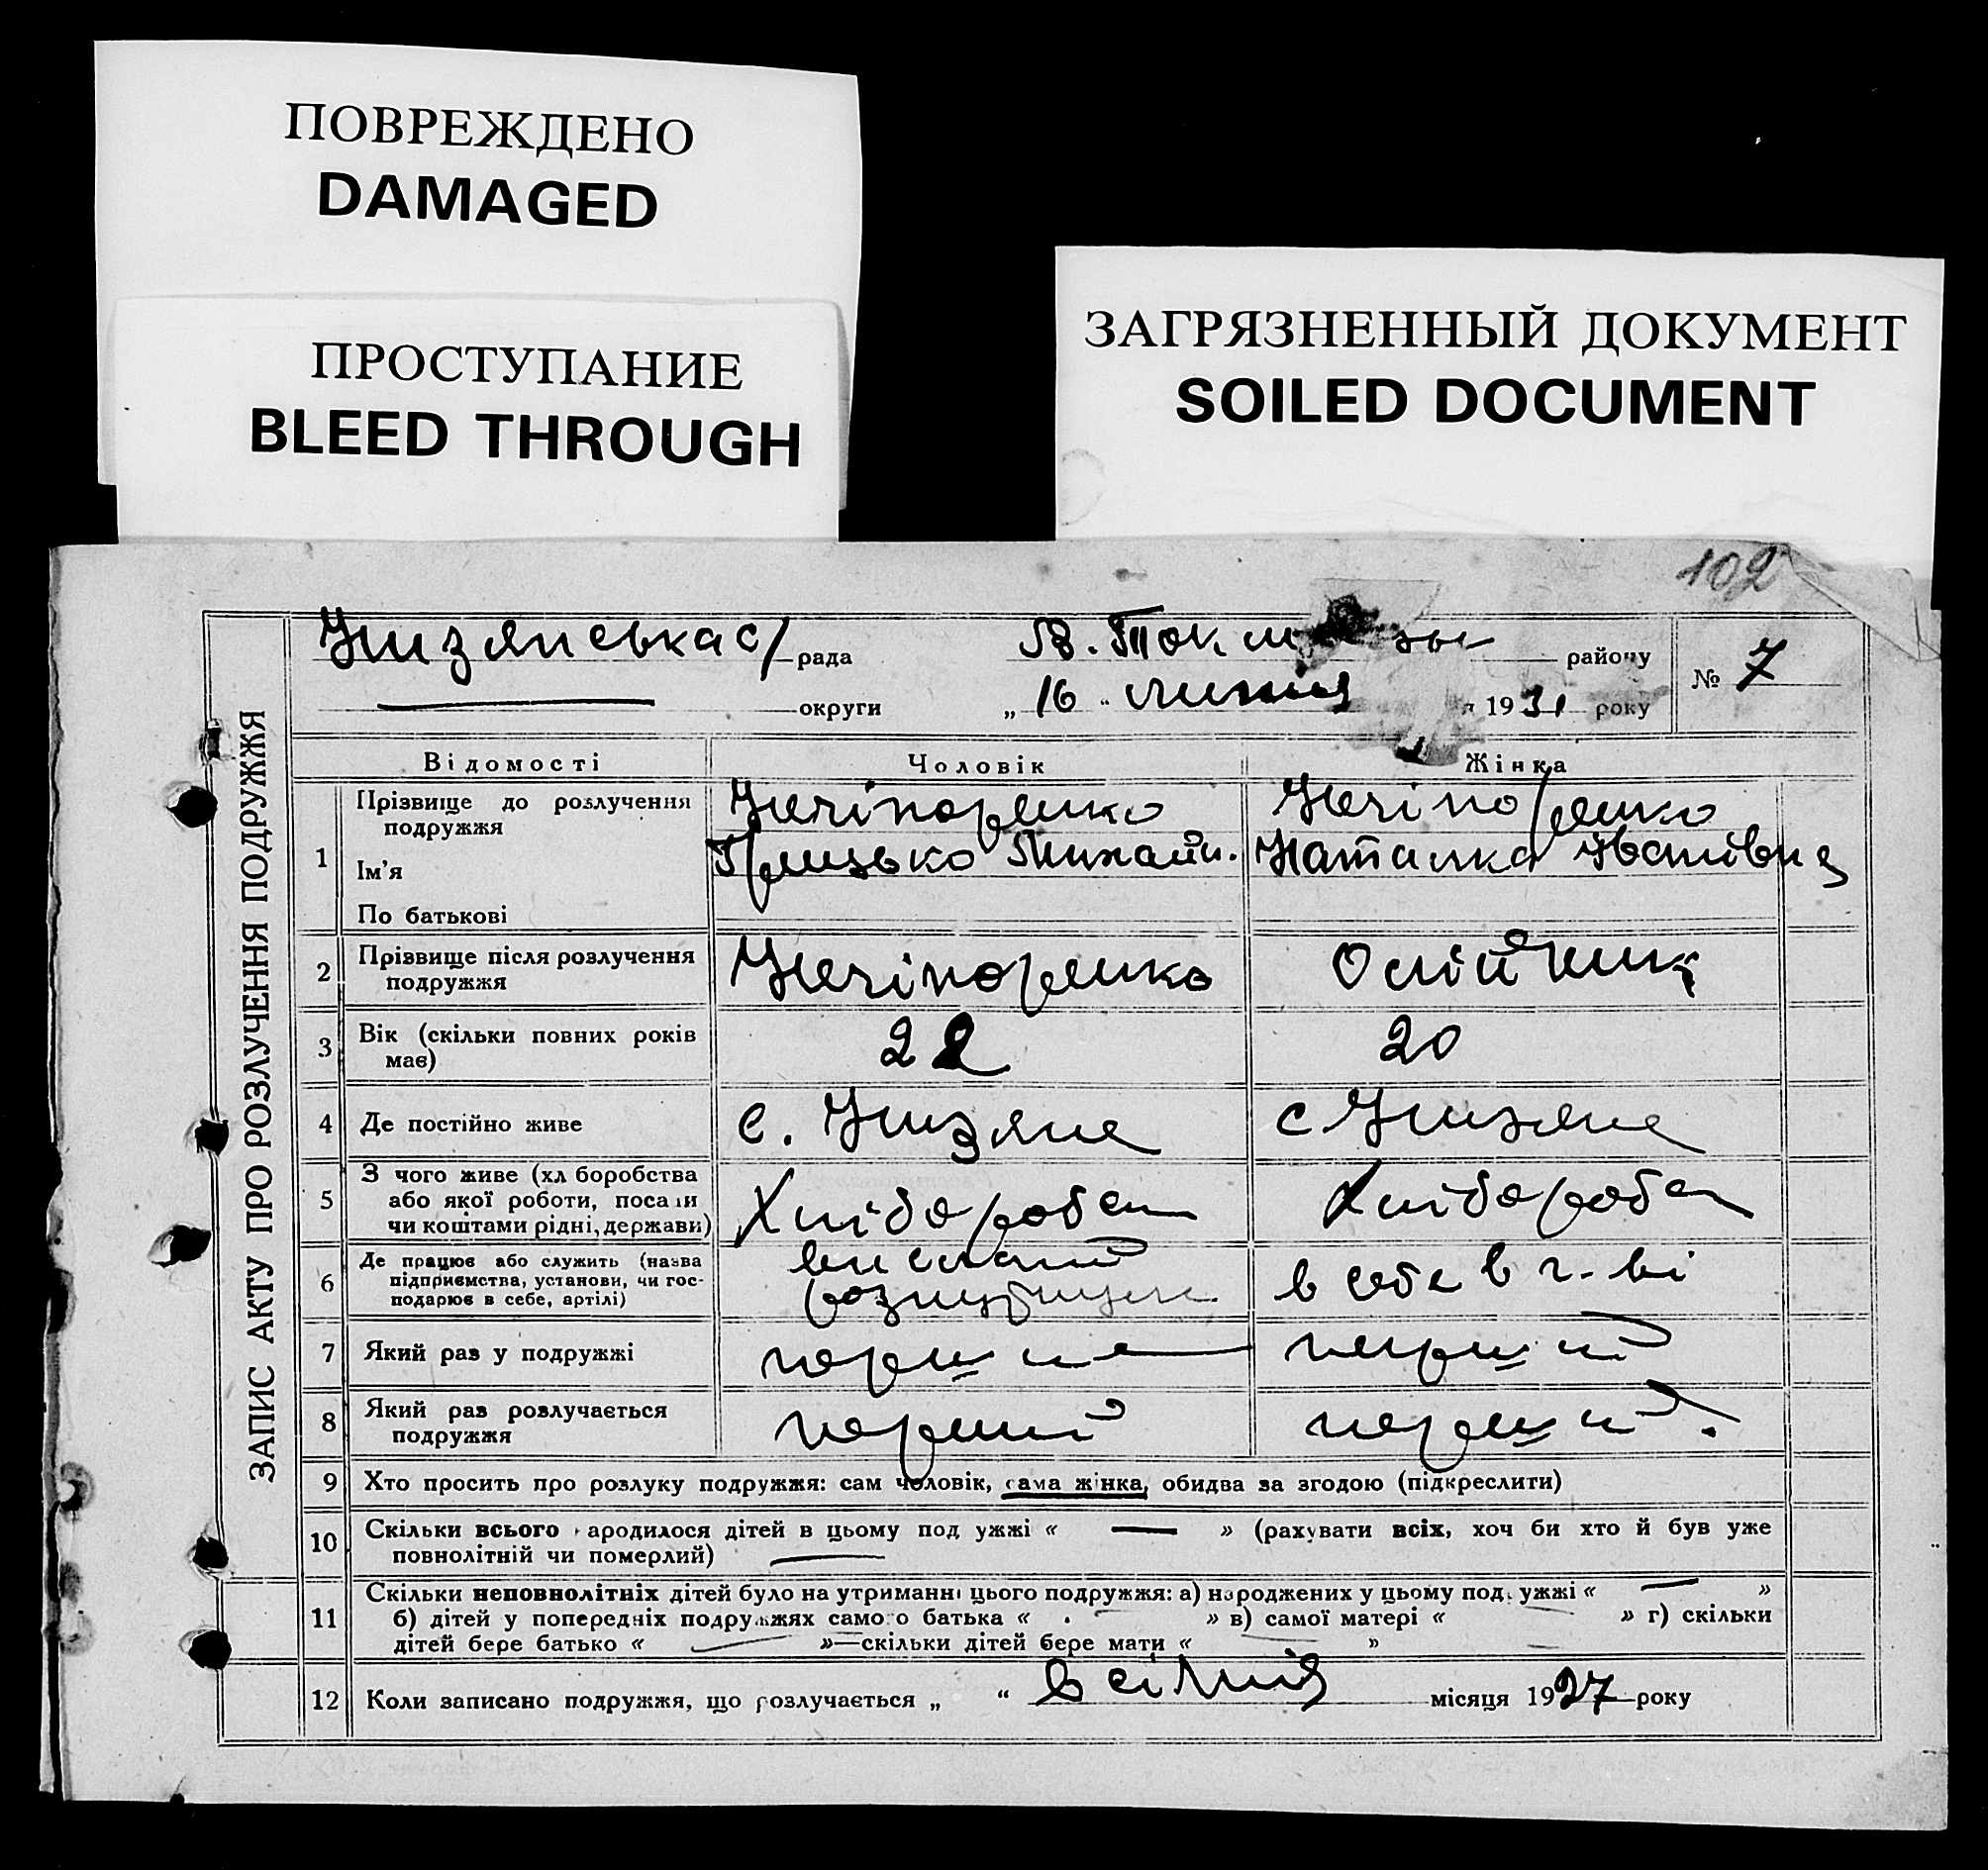 ПОВРЕЖДЕНО
DAMAGED
ПРОСТУПАНИЕ
BLEED THROUGH
ЗАГРЯЗНЕННЫЙ ДОКУМЕНТ
SOILED DOCUMENT
102
ЗАПИС АКТУ ПРО РОЗЛУЧЕННЯ ПОДРУЖЖЯ
Низянська с/ рада В. Ток району № 7
округи „ 16 “ липня 1931 року
Відомості Чоловік Жінка
1 Прізвище до розлучення подружжя Нечіпоренко Нечіпоренко
Ім'я Грицько Михайл. Наталка Іванівна
По батькові
2 Прізвище після розлучення подружжя Нечіпоренко Олійник
3 Вік (скільки повних років має) 22 20
4 Де постійно живе с. Низяне с Низяне
5 З чого живе (хл боробства або якої роботи, посади чи коштами рідні, держави) Хлібороб Хлібороб
6 Де працює або служить (назва підприємства, установи, чи господарює в себе, артілі) висланий в себе в г-ві
7 Який раз у подружжі перший перший
8 Який раз розлучається подружжя перший перший.
9 Хто просить про розлуку подружжя: сам чоловік, сама жінка, обидва за згодою (підкреслити)
10 Скільки всього ародилося дітей в цьому под ужжі « — » (рахувати всіх, хоч би хто й був уже
повнолітній чи померлий) —
11 Скільки неповнолітніх дітей було на утриманні цього подружжя: а) народжених у цьому под ужжі « — »
б) дітей у попередніх подружжях самого батька « — » в) самої матері « — » г) скільки
дітей бере батько « — »—скільки дітей бере мати « — »
12 Коли записано подружжя, що розлучається „ “ в січні місяця 1927 року